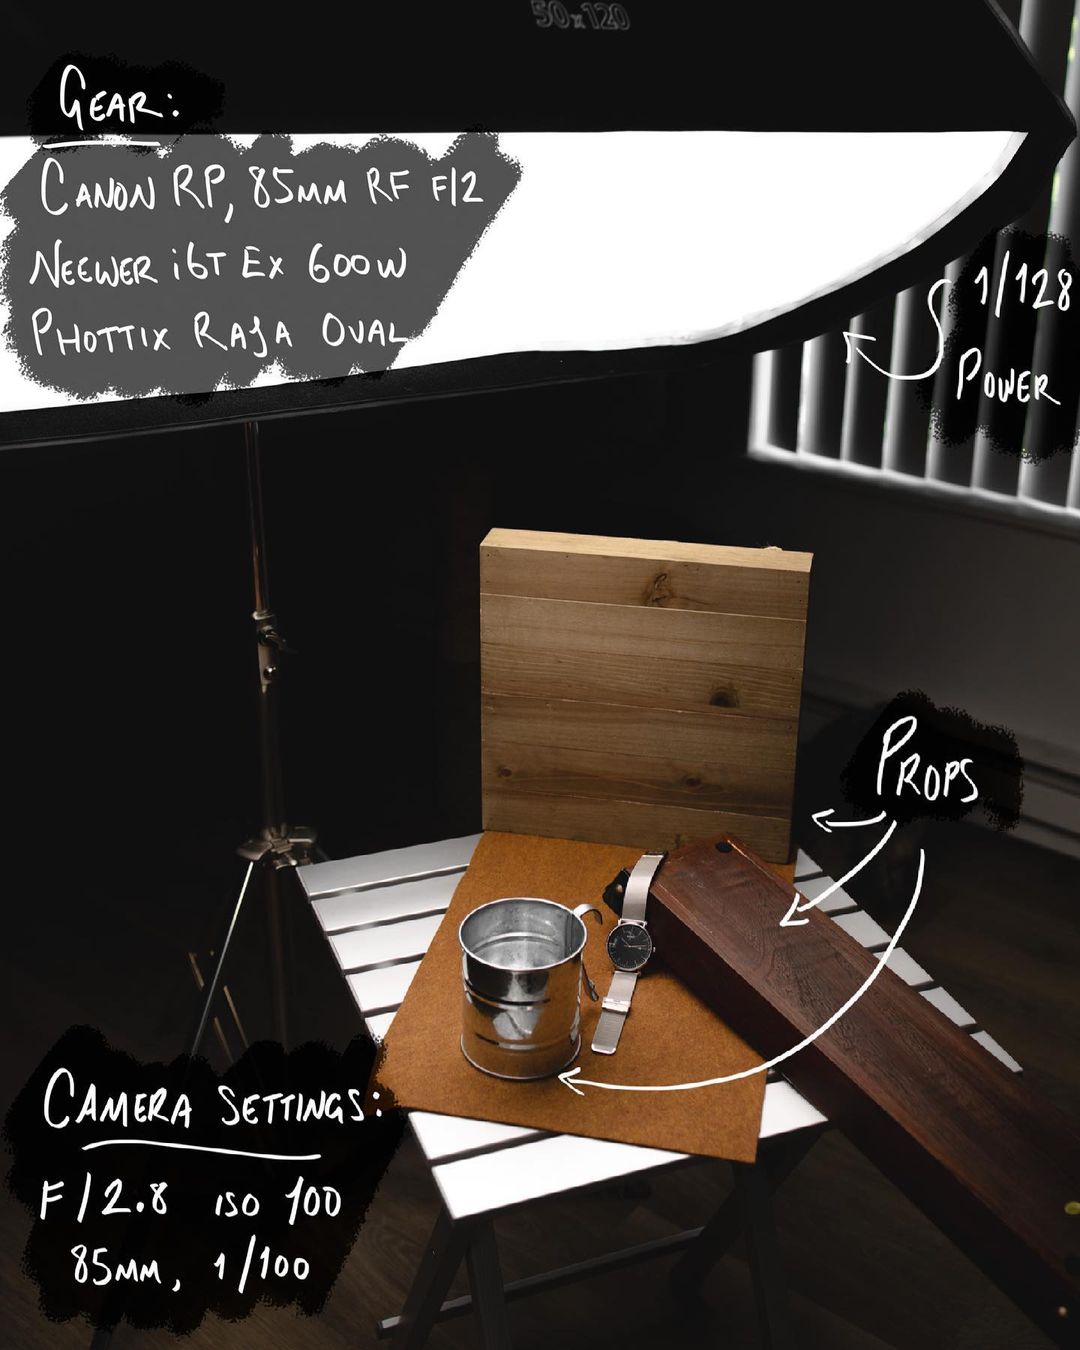 50x120
GEAR:
CANON RP, 85MM RF F/2
NEEWER i6T EX 600W
PHOTTIX RAJA OVAL
1/128
POWER
PROPS
CAMERA SETTINGS:
F/2.8 ISO 100
85MM, 1/100